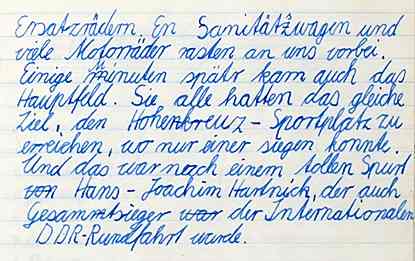 Ersatzrädern. En Sanitätswagen und
viele Motorräder rasten an uns vorbei.
Einige Minuten spätr kam auch das
Hauptfeld. Sie alle hatten das gleiche
Ziel, den Hohenkreuz-Sportplatz zu
erreichen, wo nur einer siegen konnte.
Und das war nach einem tollen Spurt
von Hans-Joachim Hartnick, der auch
Gesammtsieger war der Internationalen
DDR-Rundfahrt wurde.